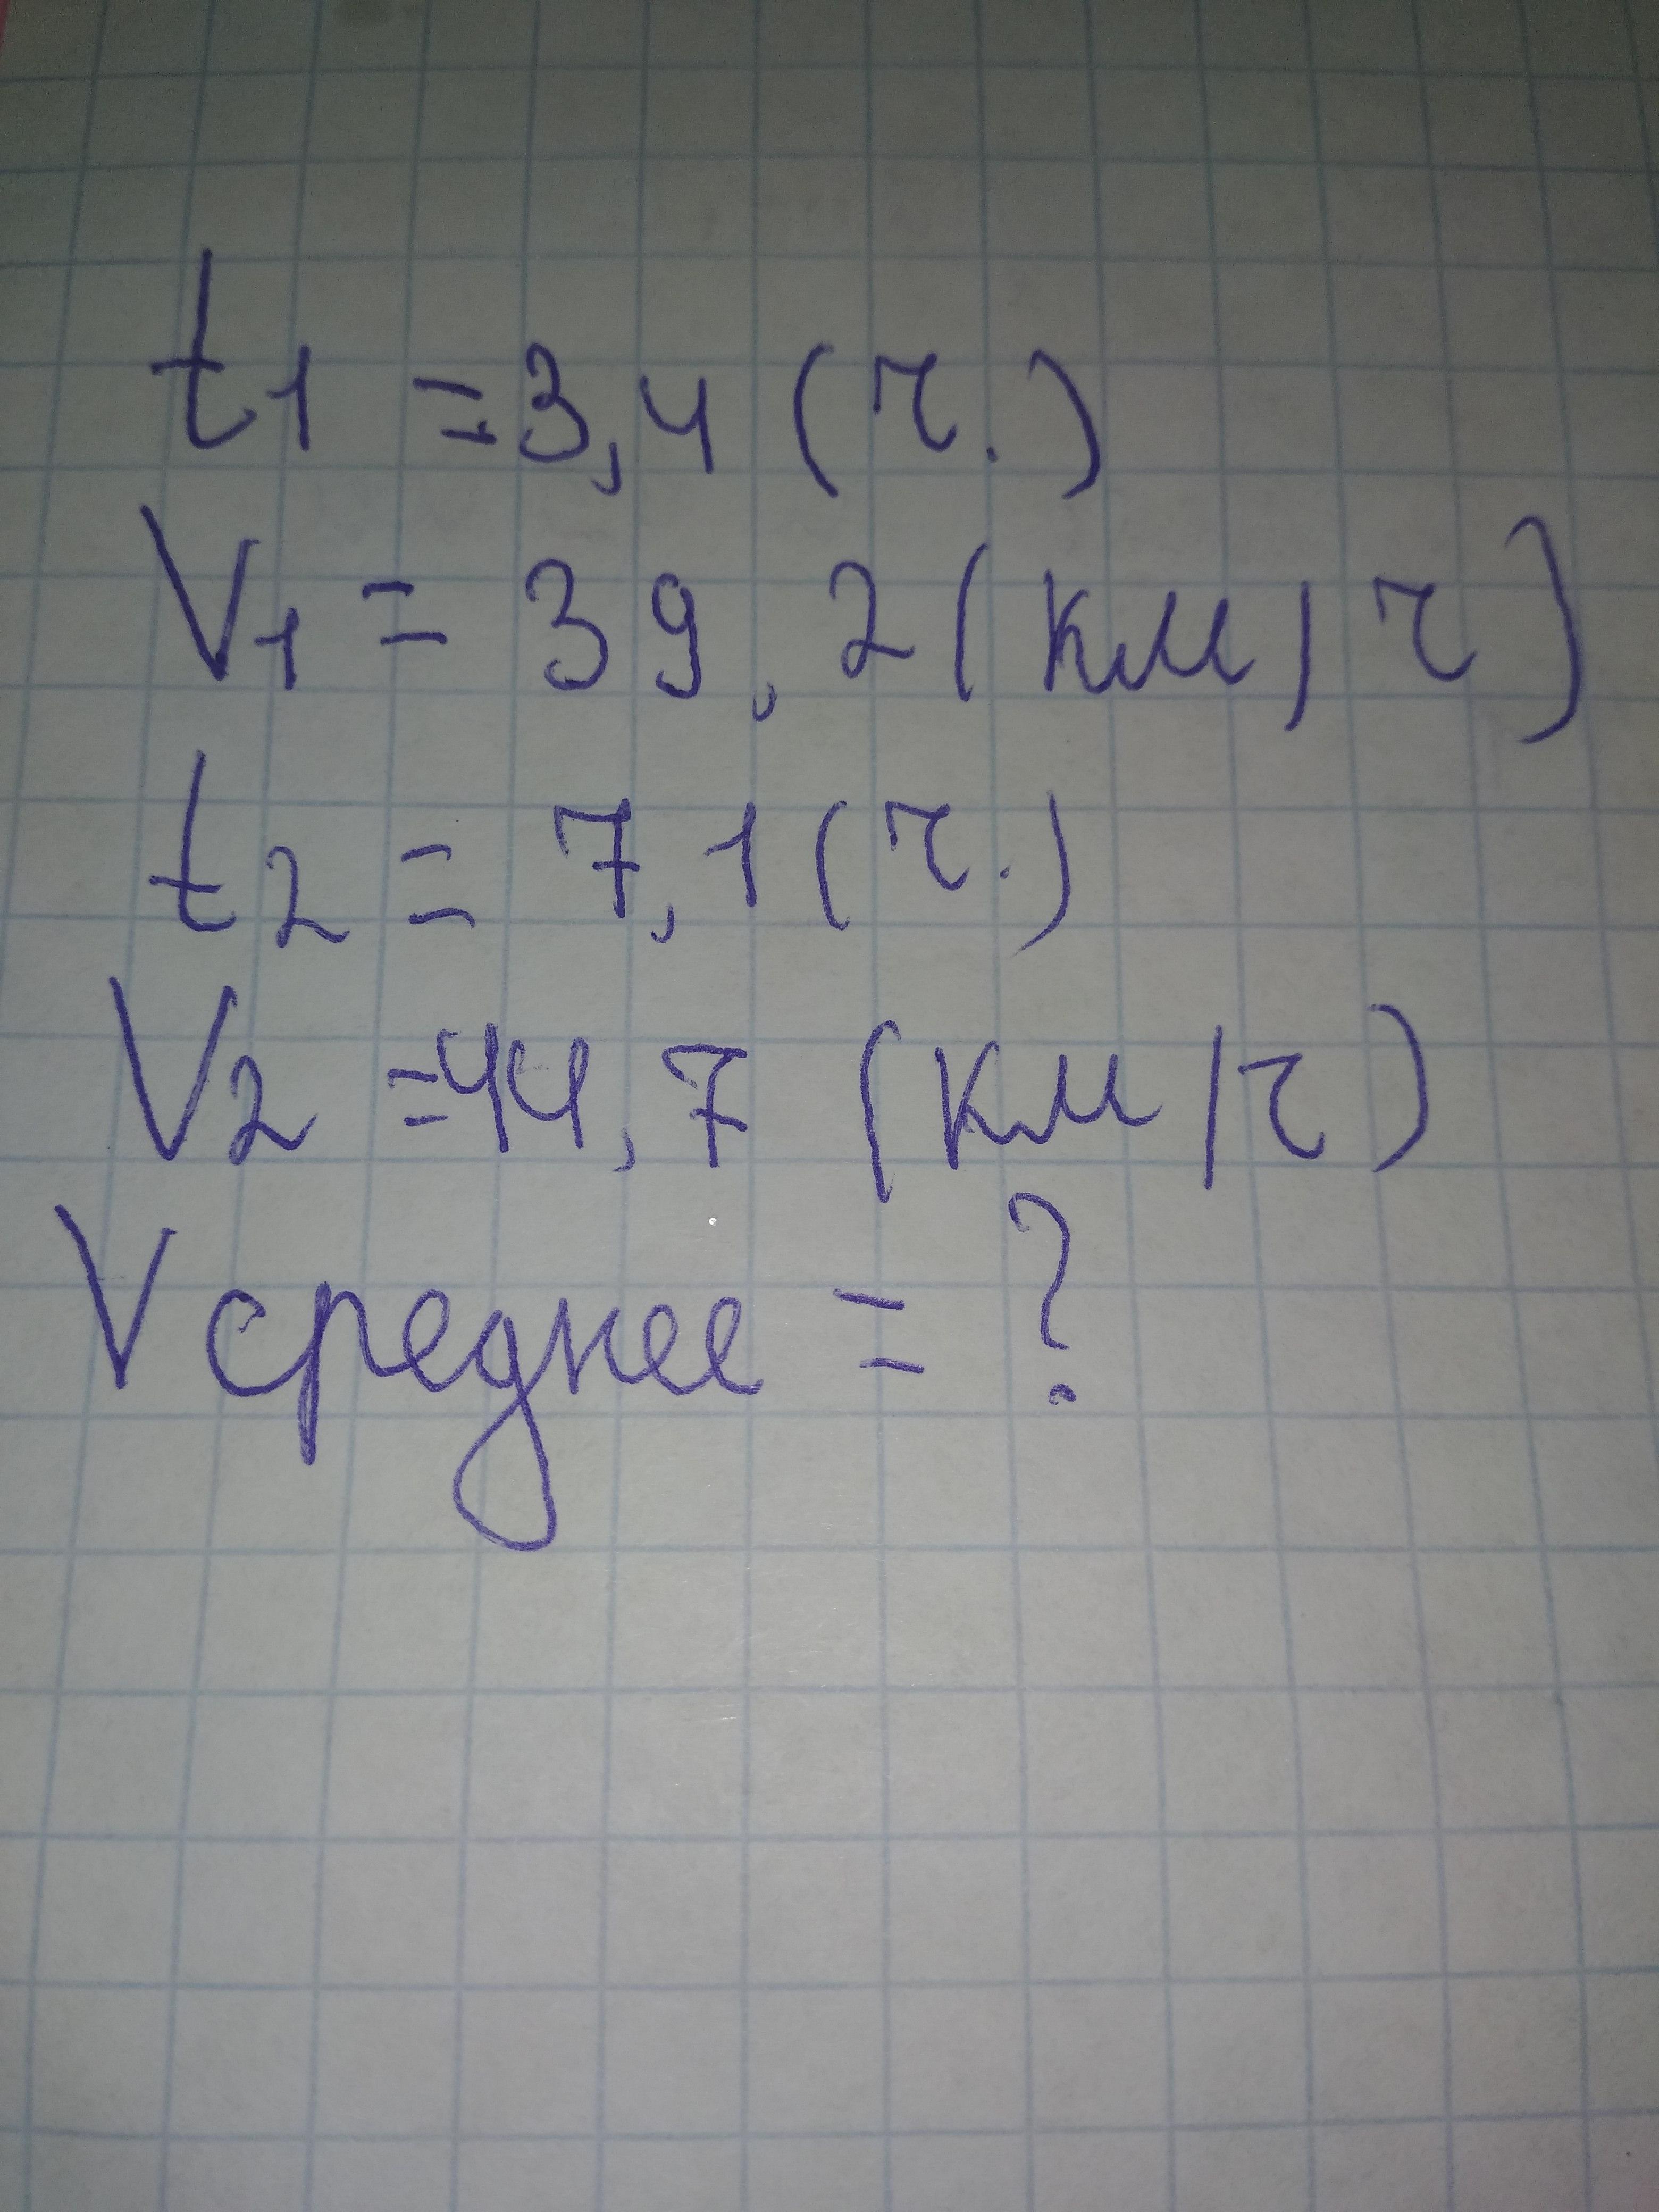 t1 = 3,4 (ч.)
V1 = 39,2 (км/ч)
t2 = 7,1 (ч.)
V2 = 44,7 (км/ч)
Vсреднее = ?